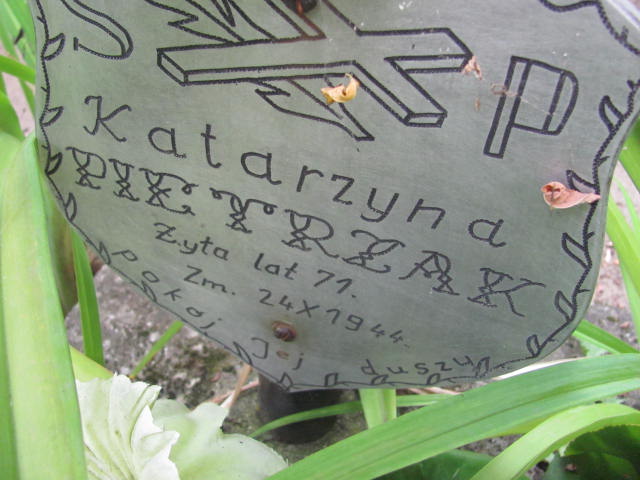 S P
Katarzyna
PIETRZAK
Żyła lat 71.
Zm. 24 X 1944.
Pokój Jej duszy